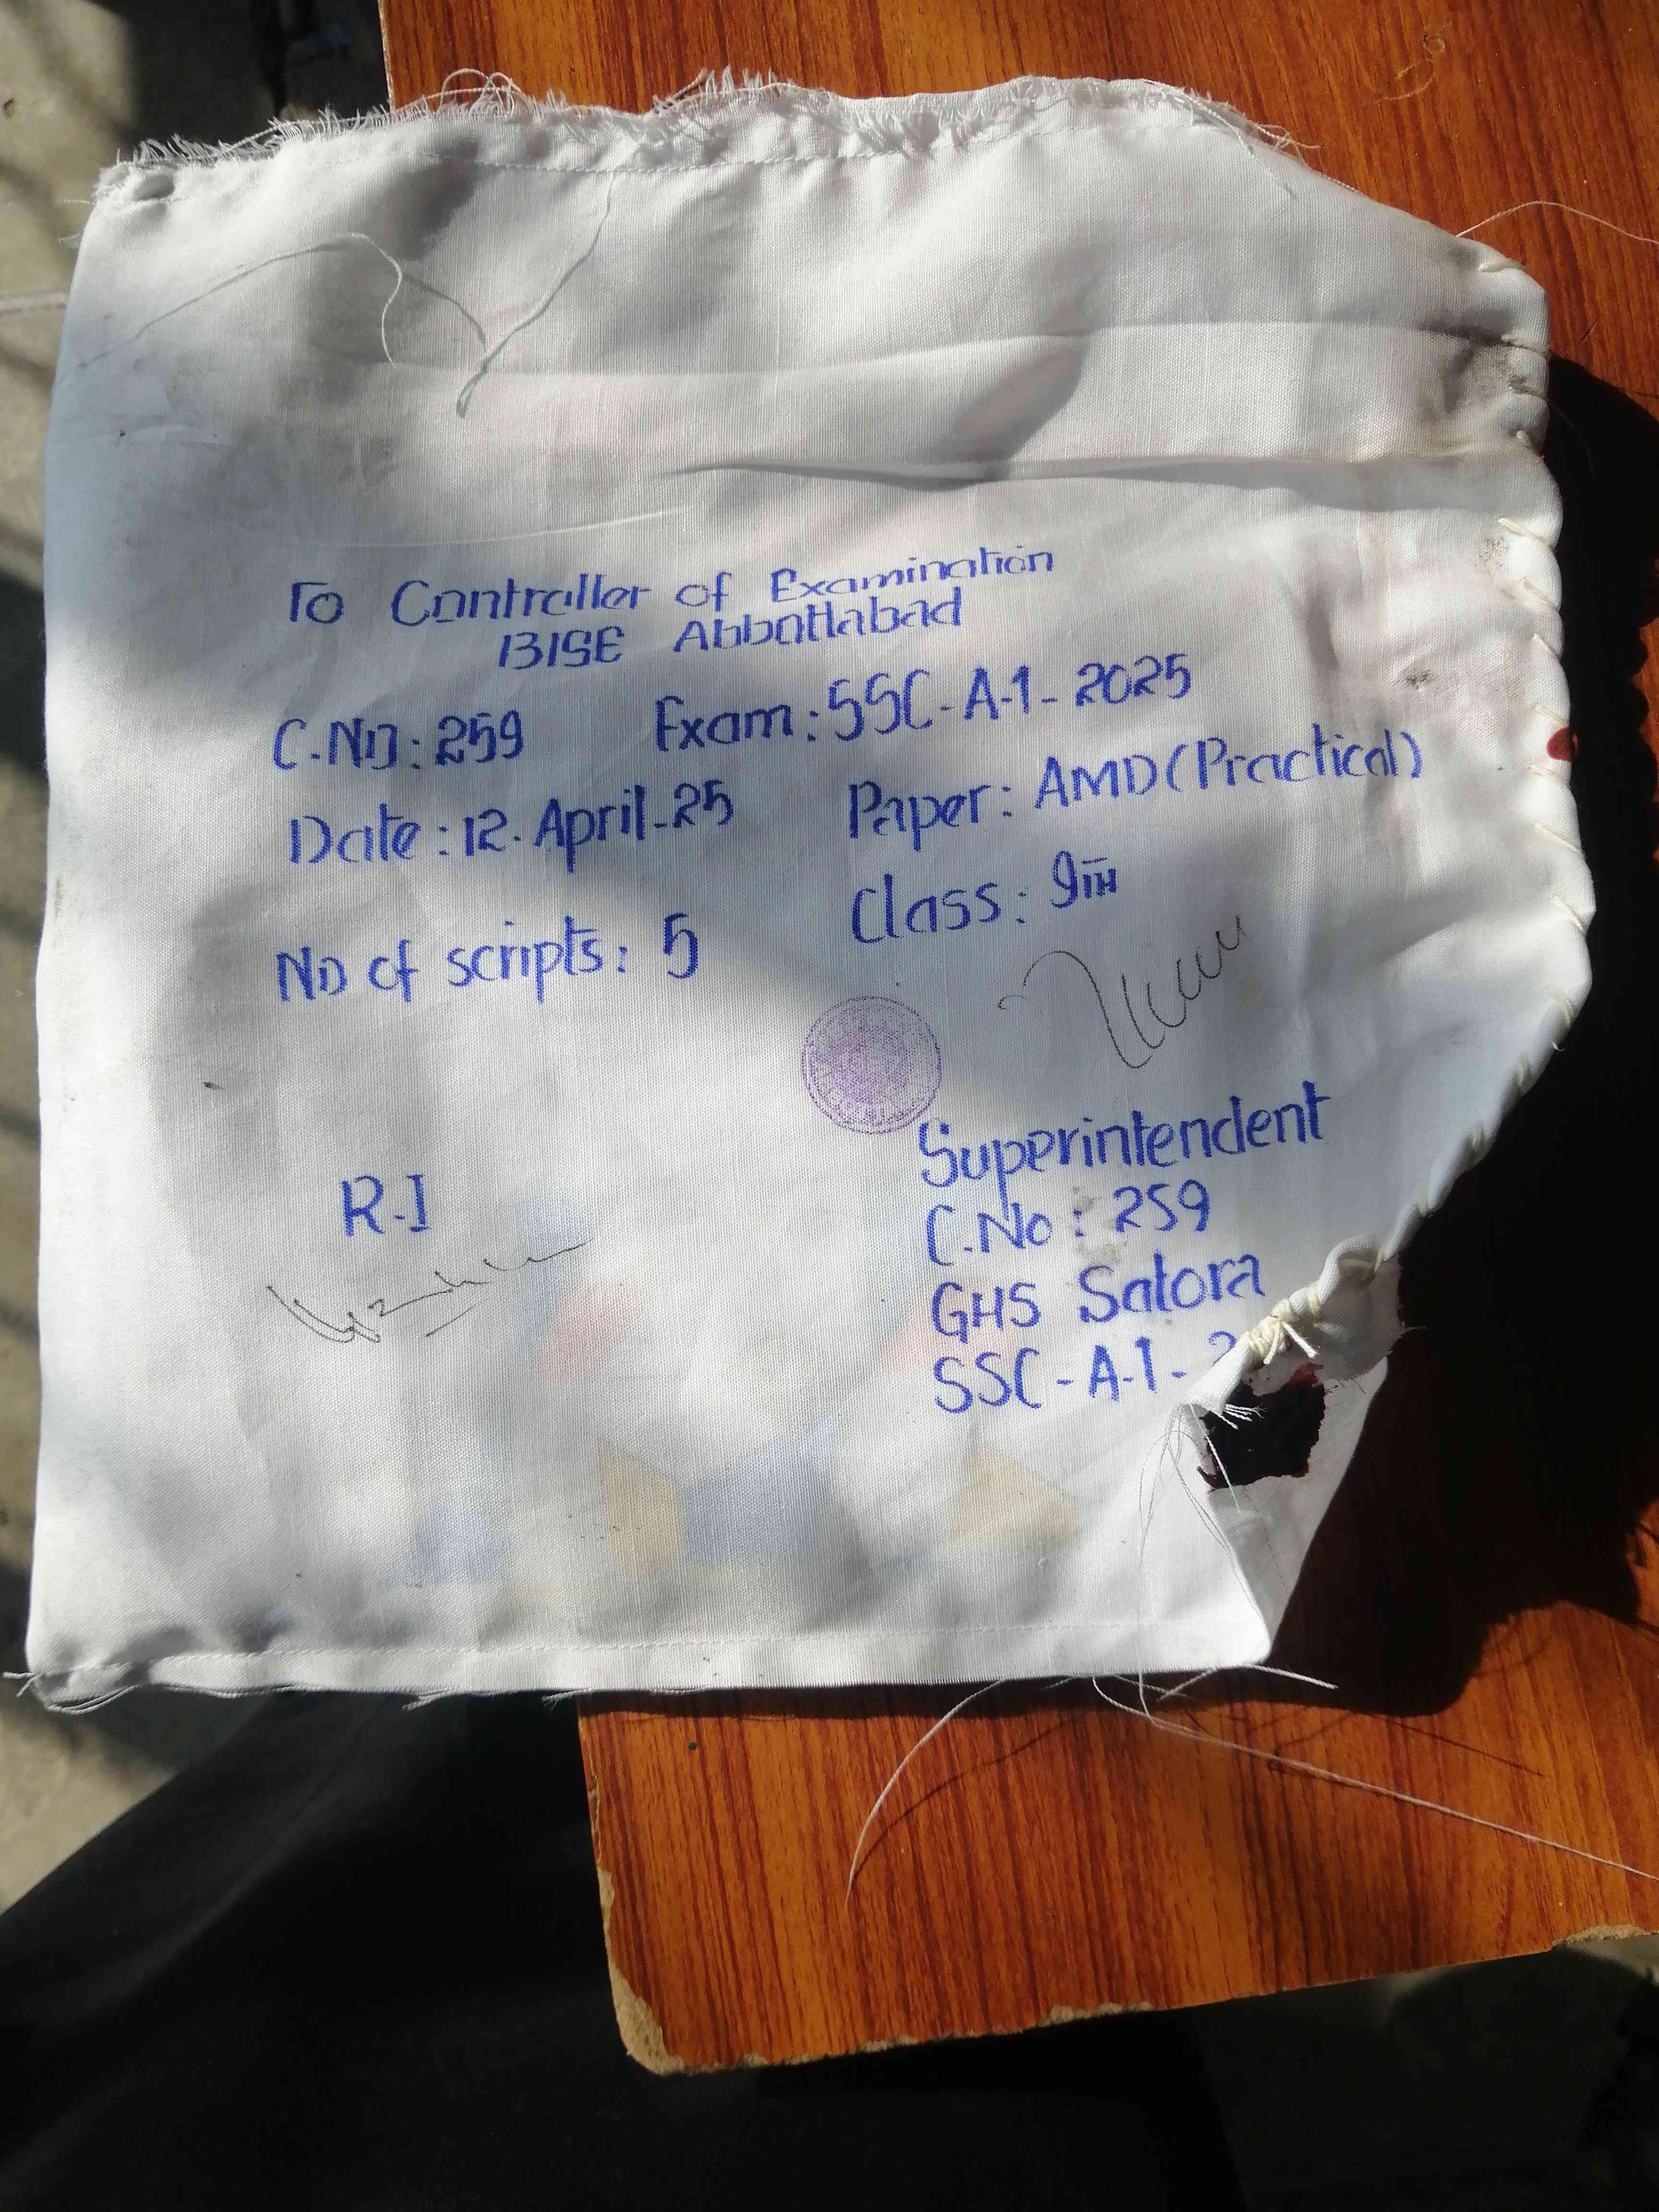 To Controller of Examination
BISE Abbottabad
C.No: 259 Exam: SSC-A-1-2025
Date: 12. April-25 Paper: AMD (Practical)
No of scripts: 5 Class: 9TH
Superintendent
R.I C.No: 259
GHS Satora
SSC-A-1-2